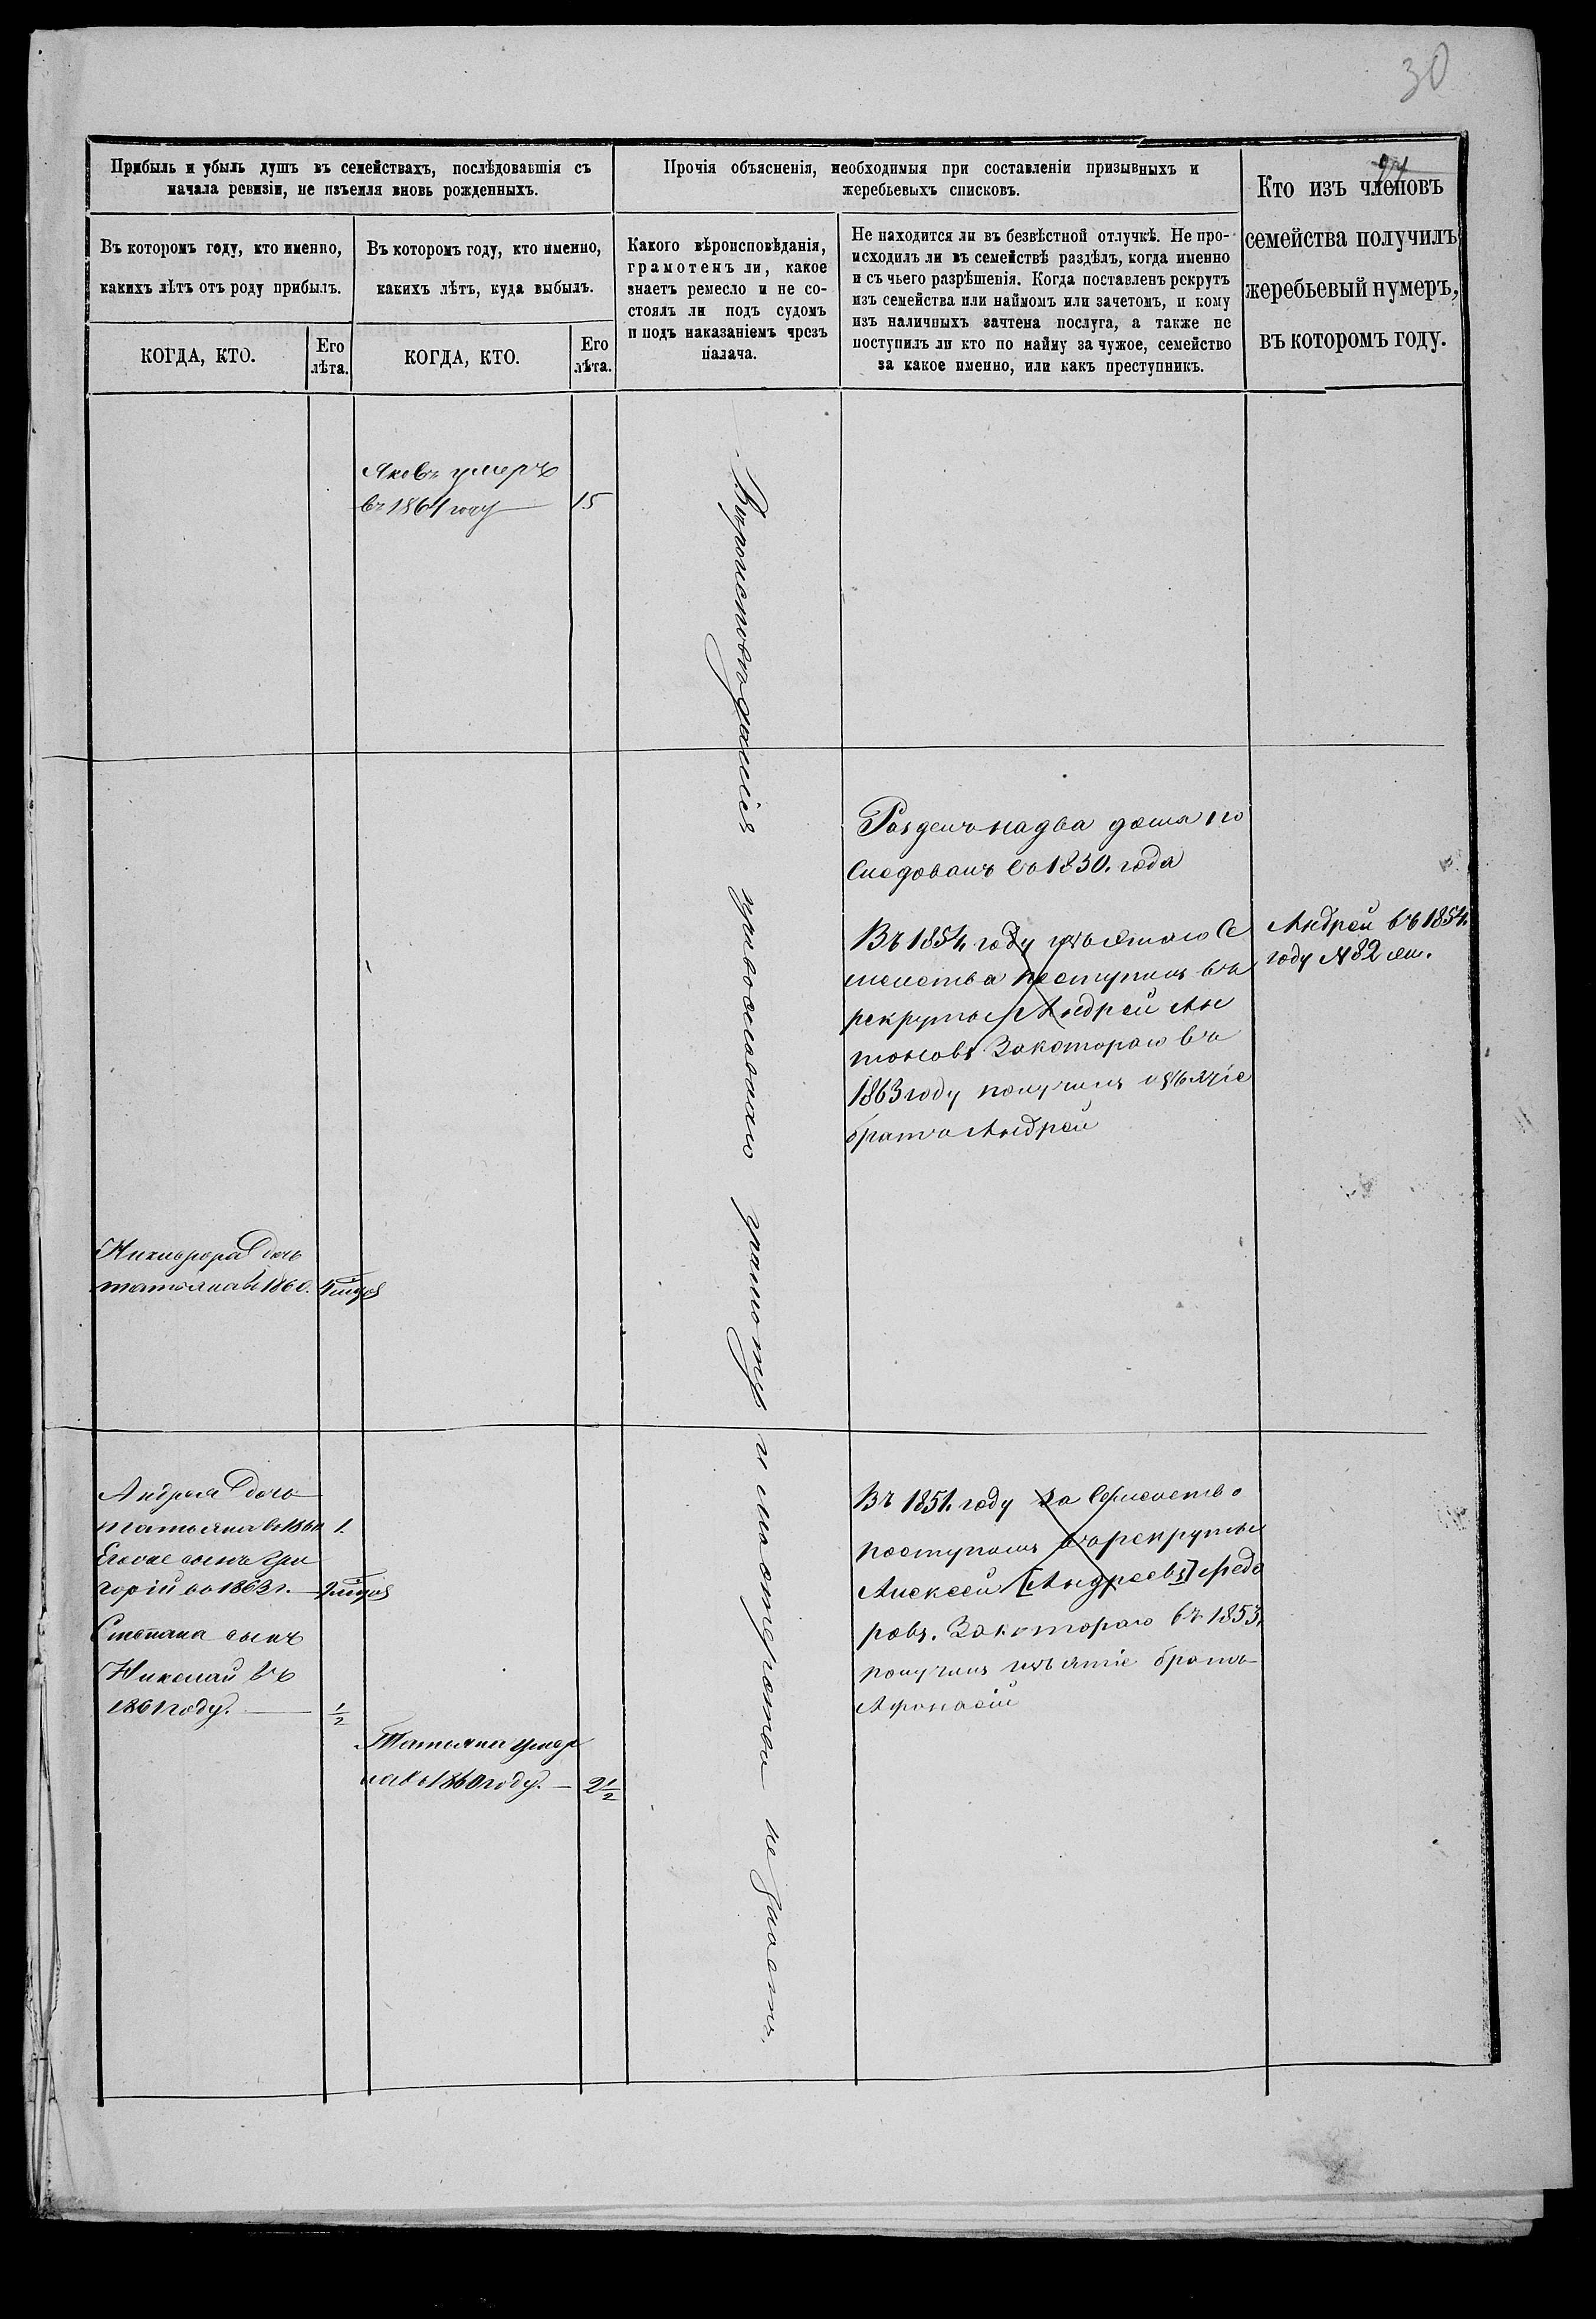 30
94
Прибыль и убыль душъ въ семействахъ, послѣдовавшія съ
начала ревизіи, не изъемля вновь рожденныхъ.
Въ которомъ году, кто именно,
какихъ лѣтъ отъ роду прибылъ.
КОГДА, КТО.
Его
лѣта.
Въ которомъ году, кто именно,
какихъ лѣтъ, куда выбылъ.
КОГДА, КТО.
Его
лѣта.
Прочія объясненія, необходимыя при составленіи призывныхъ и
жеребьевыхъ списковъ.
Какого вѣроисповѣданія,
грамотенъ ли, какое
знаетъ ремесло и не со-
стоялъ ли подъ судомъ
и подъ наказаніемъ чрезъ
палача.
Не находится ли въ безвѣстной отлучкѣ. Не про-
исходилъ ли въ семействѣ раздѣлъ, когда именно
и съ чьего разрѣшенія. Когда поставленъ рекрутъ
изъ семейства или наймомъ или зачетомъ, и кому
изъ наличныхъ зачтена послуга, а также не
поступилъ ли кто по найму за чужое, семейство
за какое именно, или какъ преступникъ.
Кто изъ членовъ
семейства получилъ
жеребьевый нумеръ,
въ которомъ году.
Яковъ умеръ
въ 1861 году 15
Вѣроисповѣданія православнаго грамоты и мастерства не знаютъ.
Раздѣлъ на два дома по
следовалъ до 1850. года
Въ 1854 году изъ этаго Се
мейства поступилъ въ
рекруты Андрей Ан
тоновъ Закотораго въ
1863 году получилъ изъятіе
братъ Андрей
Андрей въ 1854.
году № 82
Никифора дочь
татьяна въ 1860.
Андрея дочь
татьяна въ 1860 1.
сынъ Гри
горій въ 1863 г.
Степана сынъ
Николай въ
1861 году. 1/2
Татьяна умер
ла въ 1860 году. 2 1/2
Въ 1851. году за Семейство
поступилъ въ рекруты
Алексей [Андреевъ] Федо
ровъ. Закотораго въ 1853.
получилъ изъятіе братъ
Афонасій